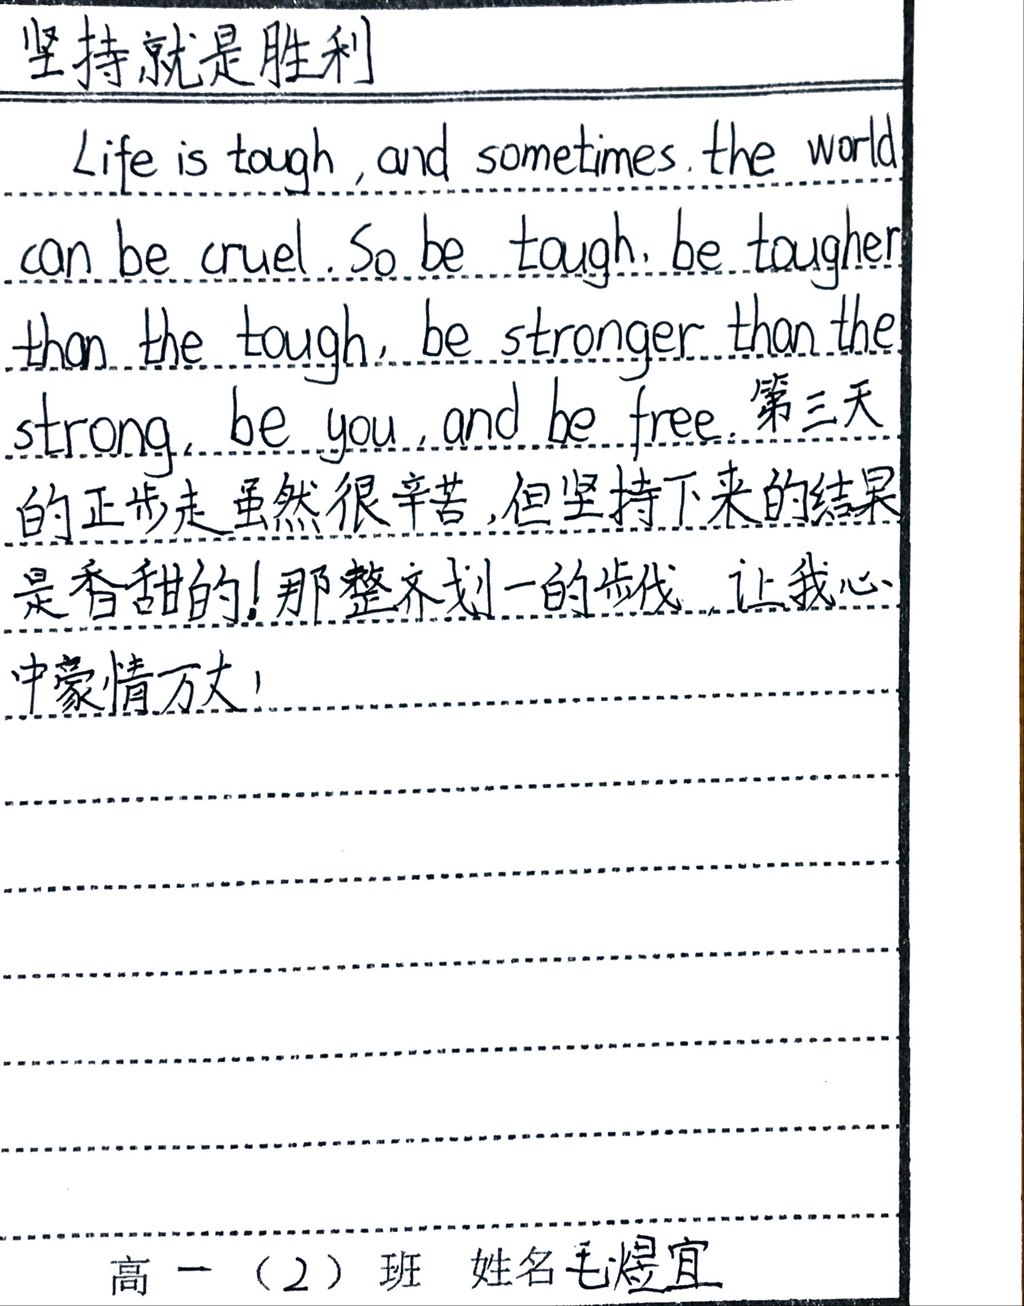 坚持就是胜利
Life is tough, and sometimes. the world
can be cruel. So be tough. be tougher
than the tough, be stronger than the
strong, be you, and be free. 第三天
的正步走虽然很辛苦,但坚持下来的结果
是香甜的!那整齐划一的步伐,让我心
中蒙情万丈!
高一(2)班 姓名毛煜宜